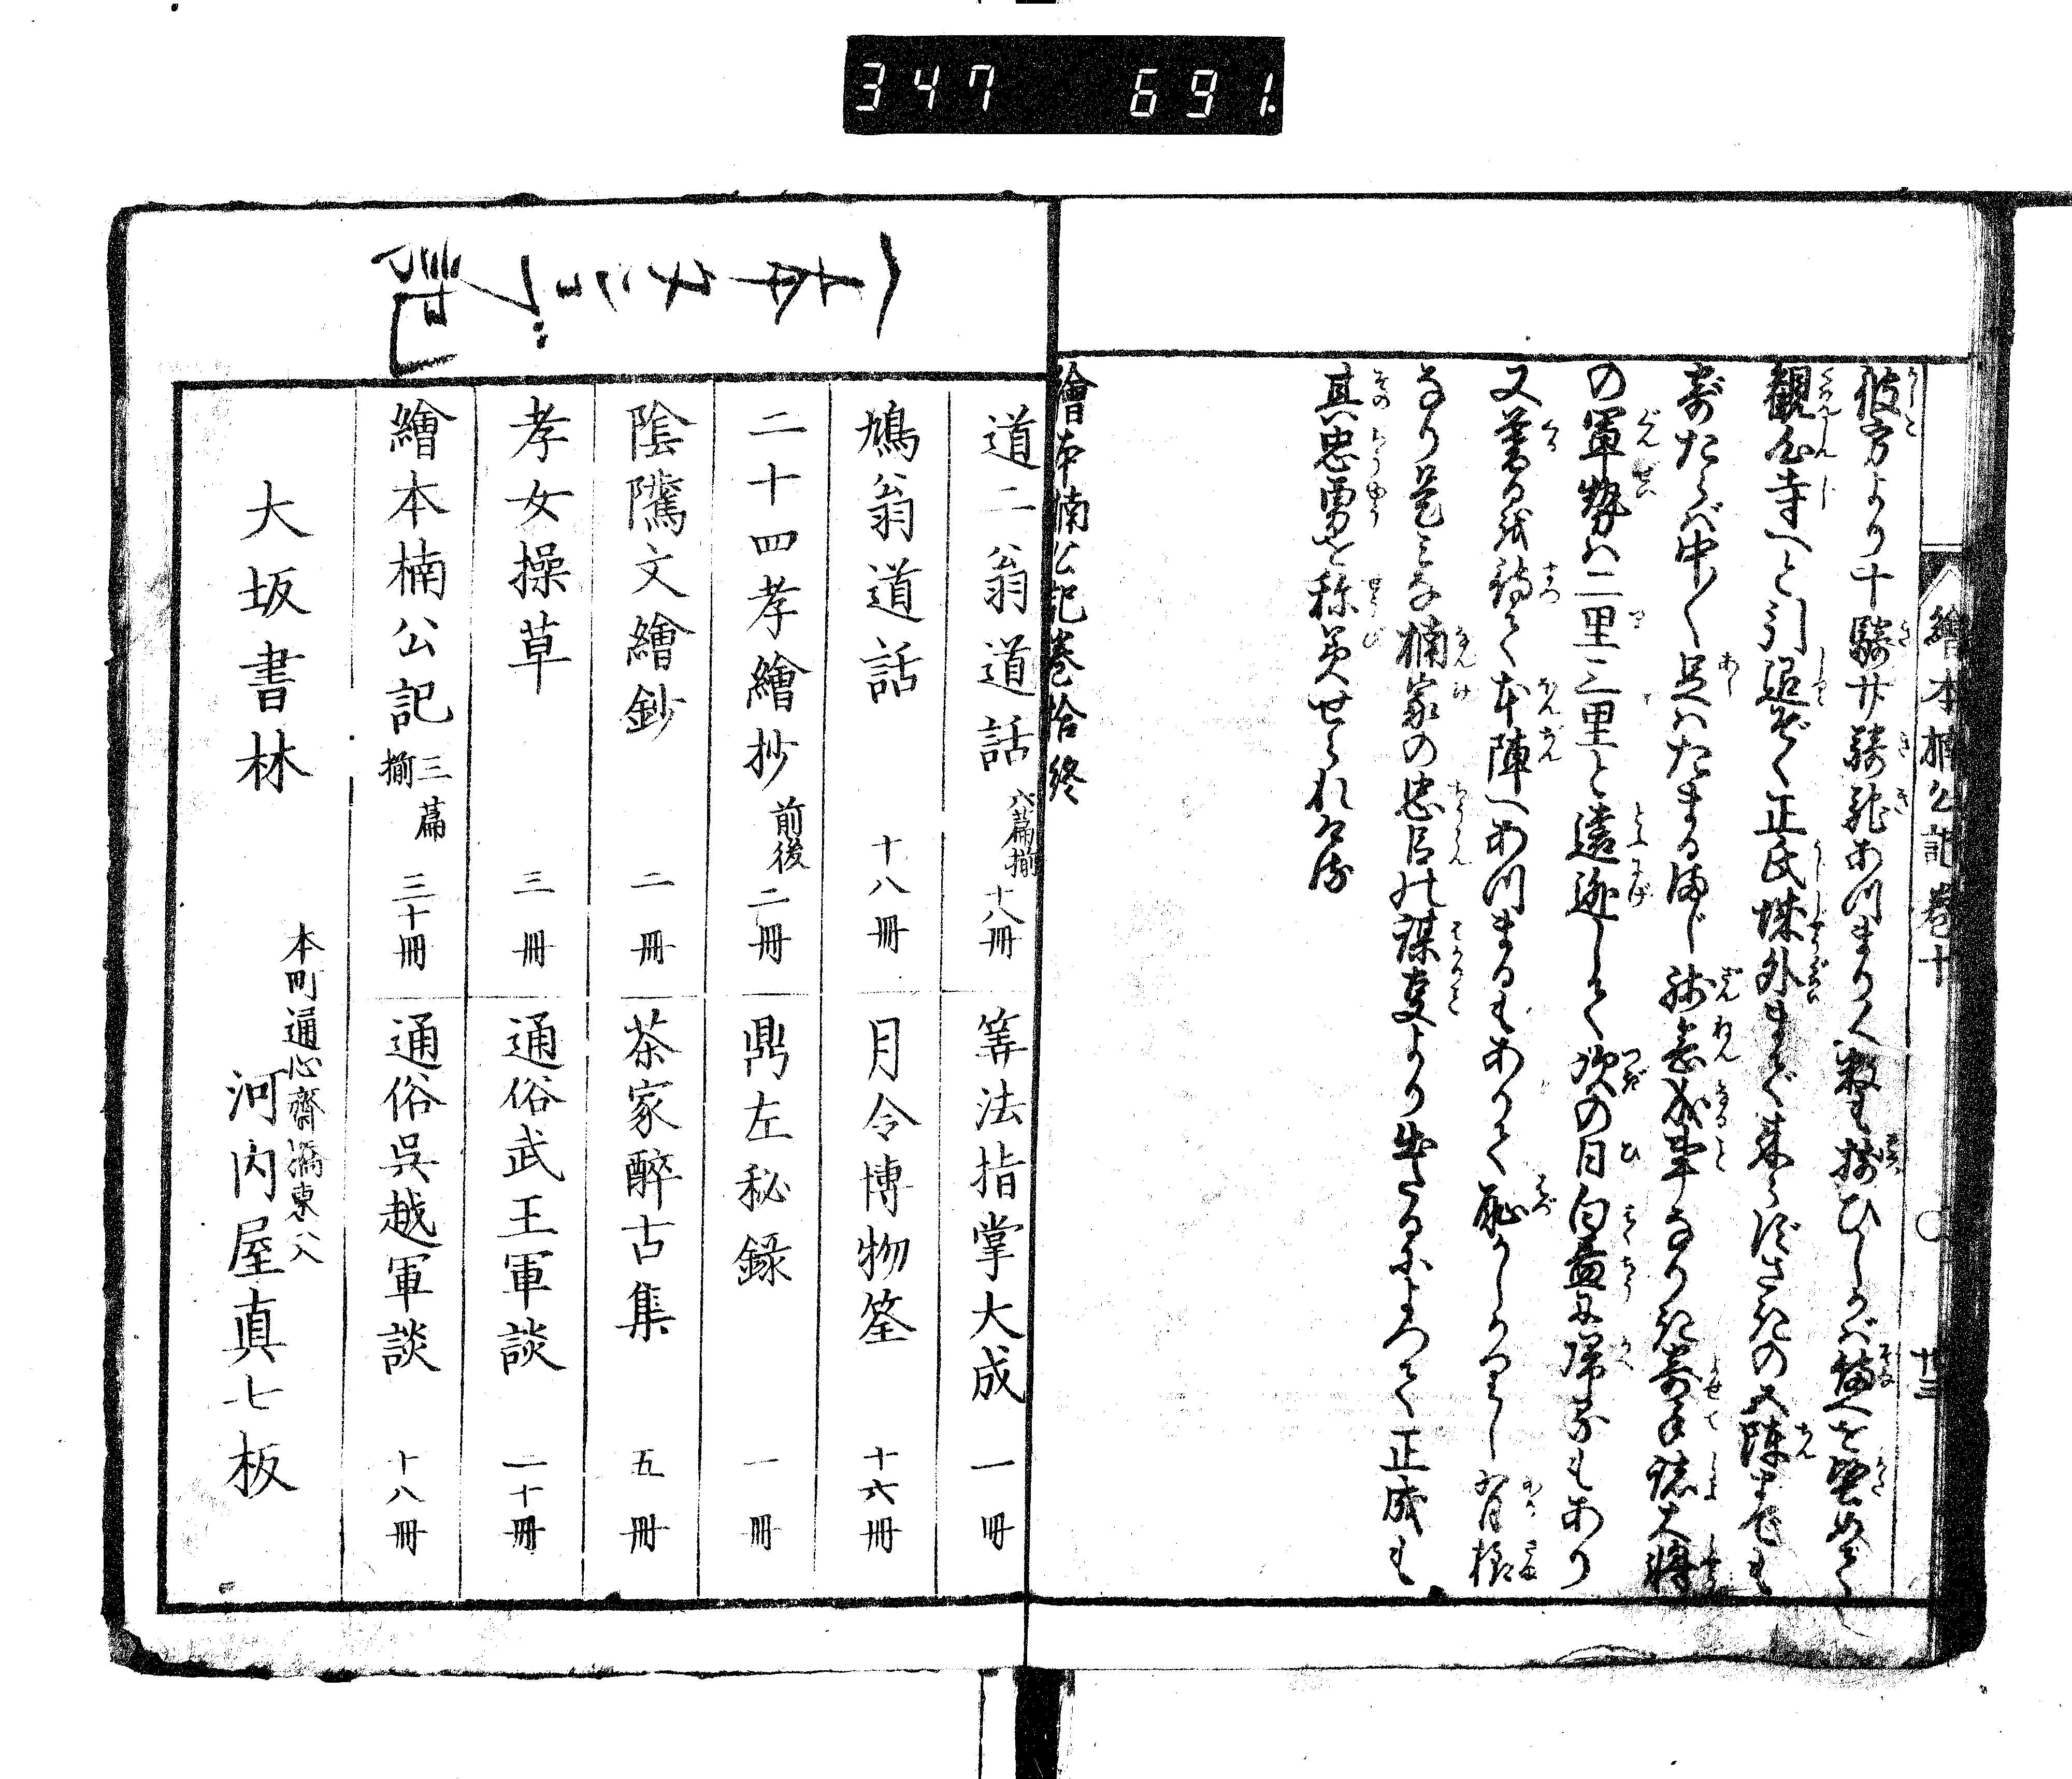 347 691
繪本楠公記巻十 廿三
彼方より十騎廿騎馳あつまりく整も揃ひしかば備へを堅めて
観心寺へと引退ぞく正氏城外まで来らずさきの
寄たらば中〱足はたまるまじ残念成事なりき寄手諸大将
の軍勢は二里三里と遠迯して次の日白昼に帰るもあり
又暮るを待て本陣へあつまるもありて恥かしかりし有様
なり是みな楠家の忠臣の謀事より出たるによつて正成も
其忠勇を称美せられける
繪本楠公記巻拾終
道二翁道話 六篇揃 十八冊
鳩翁道話 十八冊
二十四孝繪抄 前後 二冊
陰隲文繪鈔 二冊
孝女操草 三冊
繪本楠公記 三篇揃 三十冊
筭法指掌大成 一冊
月令博物筌 十六冊
鼎左秘録 一冊
茶家醉古集 五冊
通俗武王軍談 二十冊
通俗呉越軍談 十八冊
大坂書林
本町通心齋橋東へ入
河内屋真七板